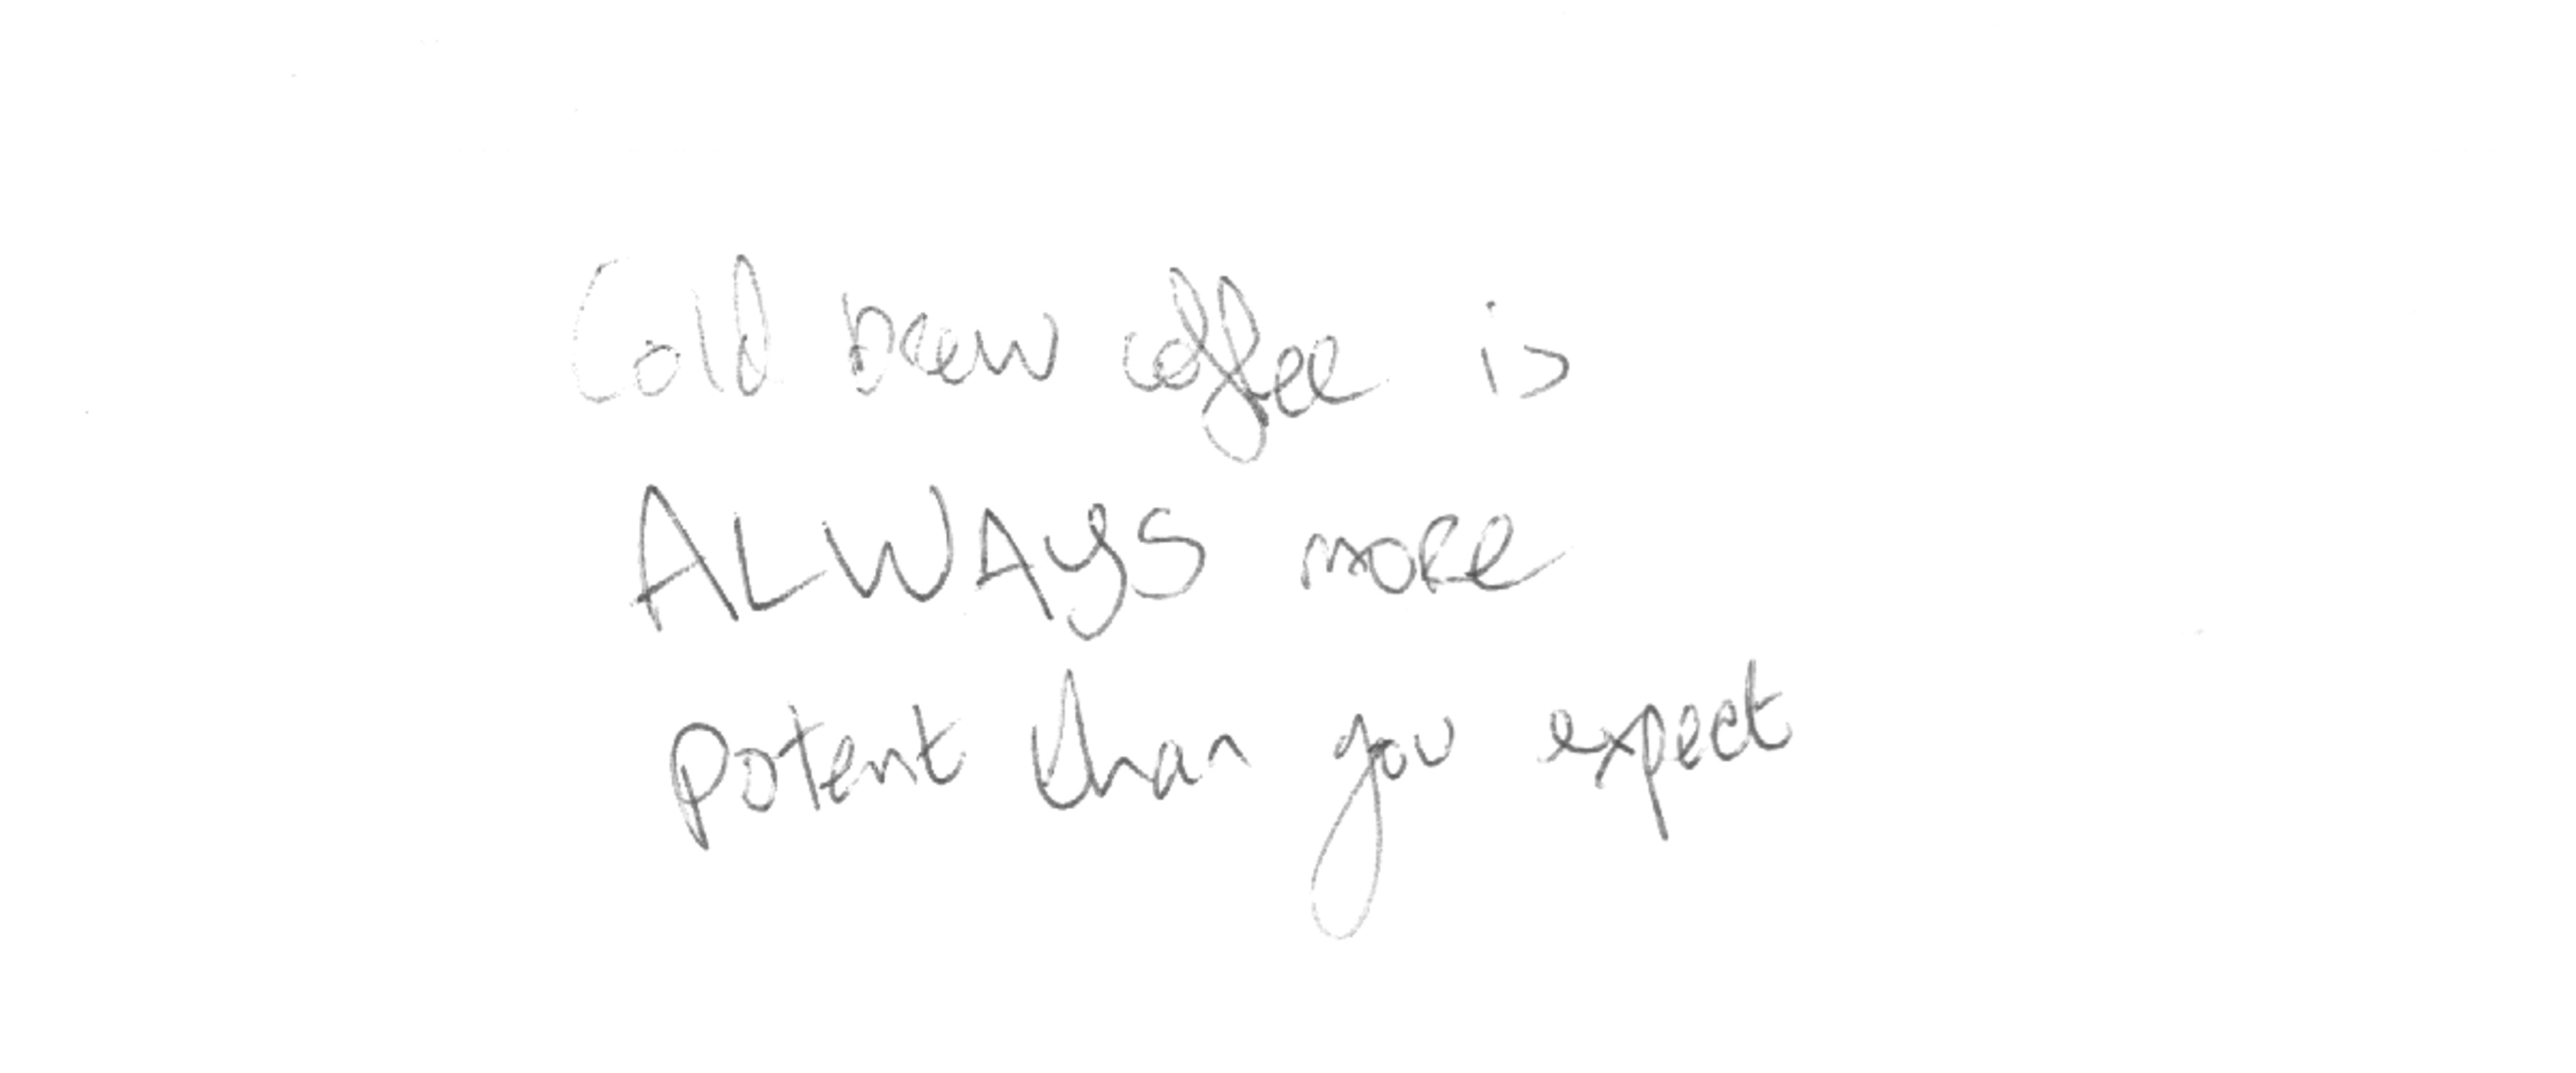 Cold brew coffee is
ALWAYS more
potent than you expect